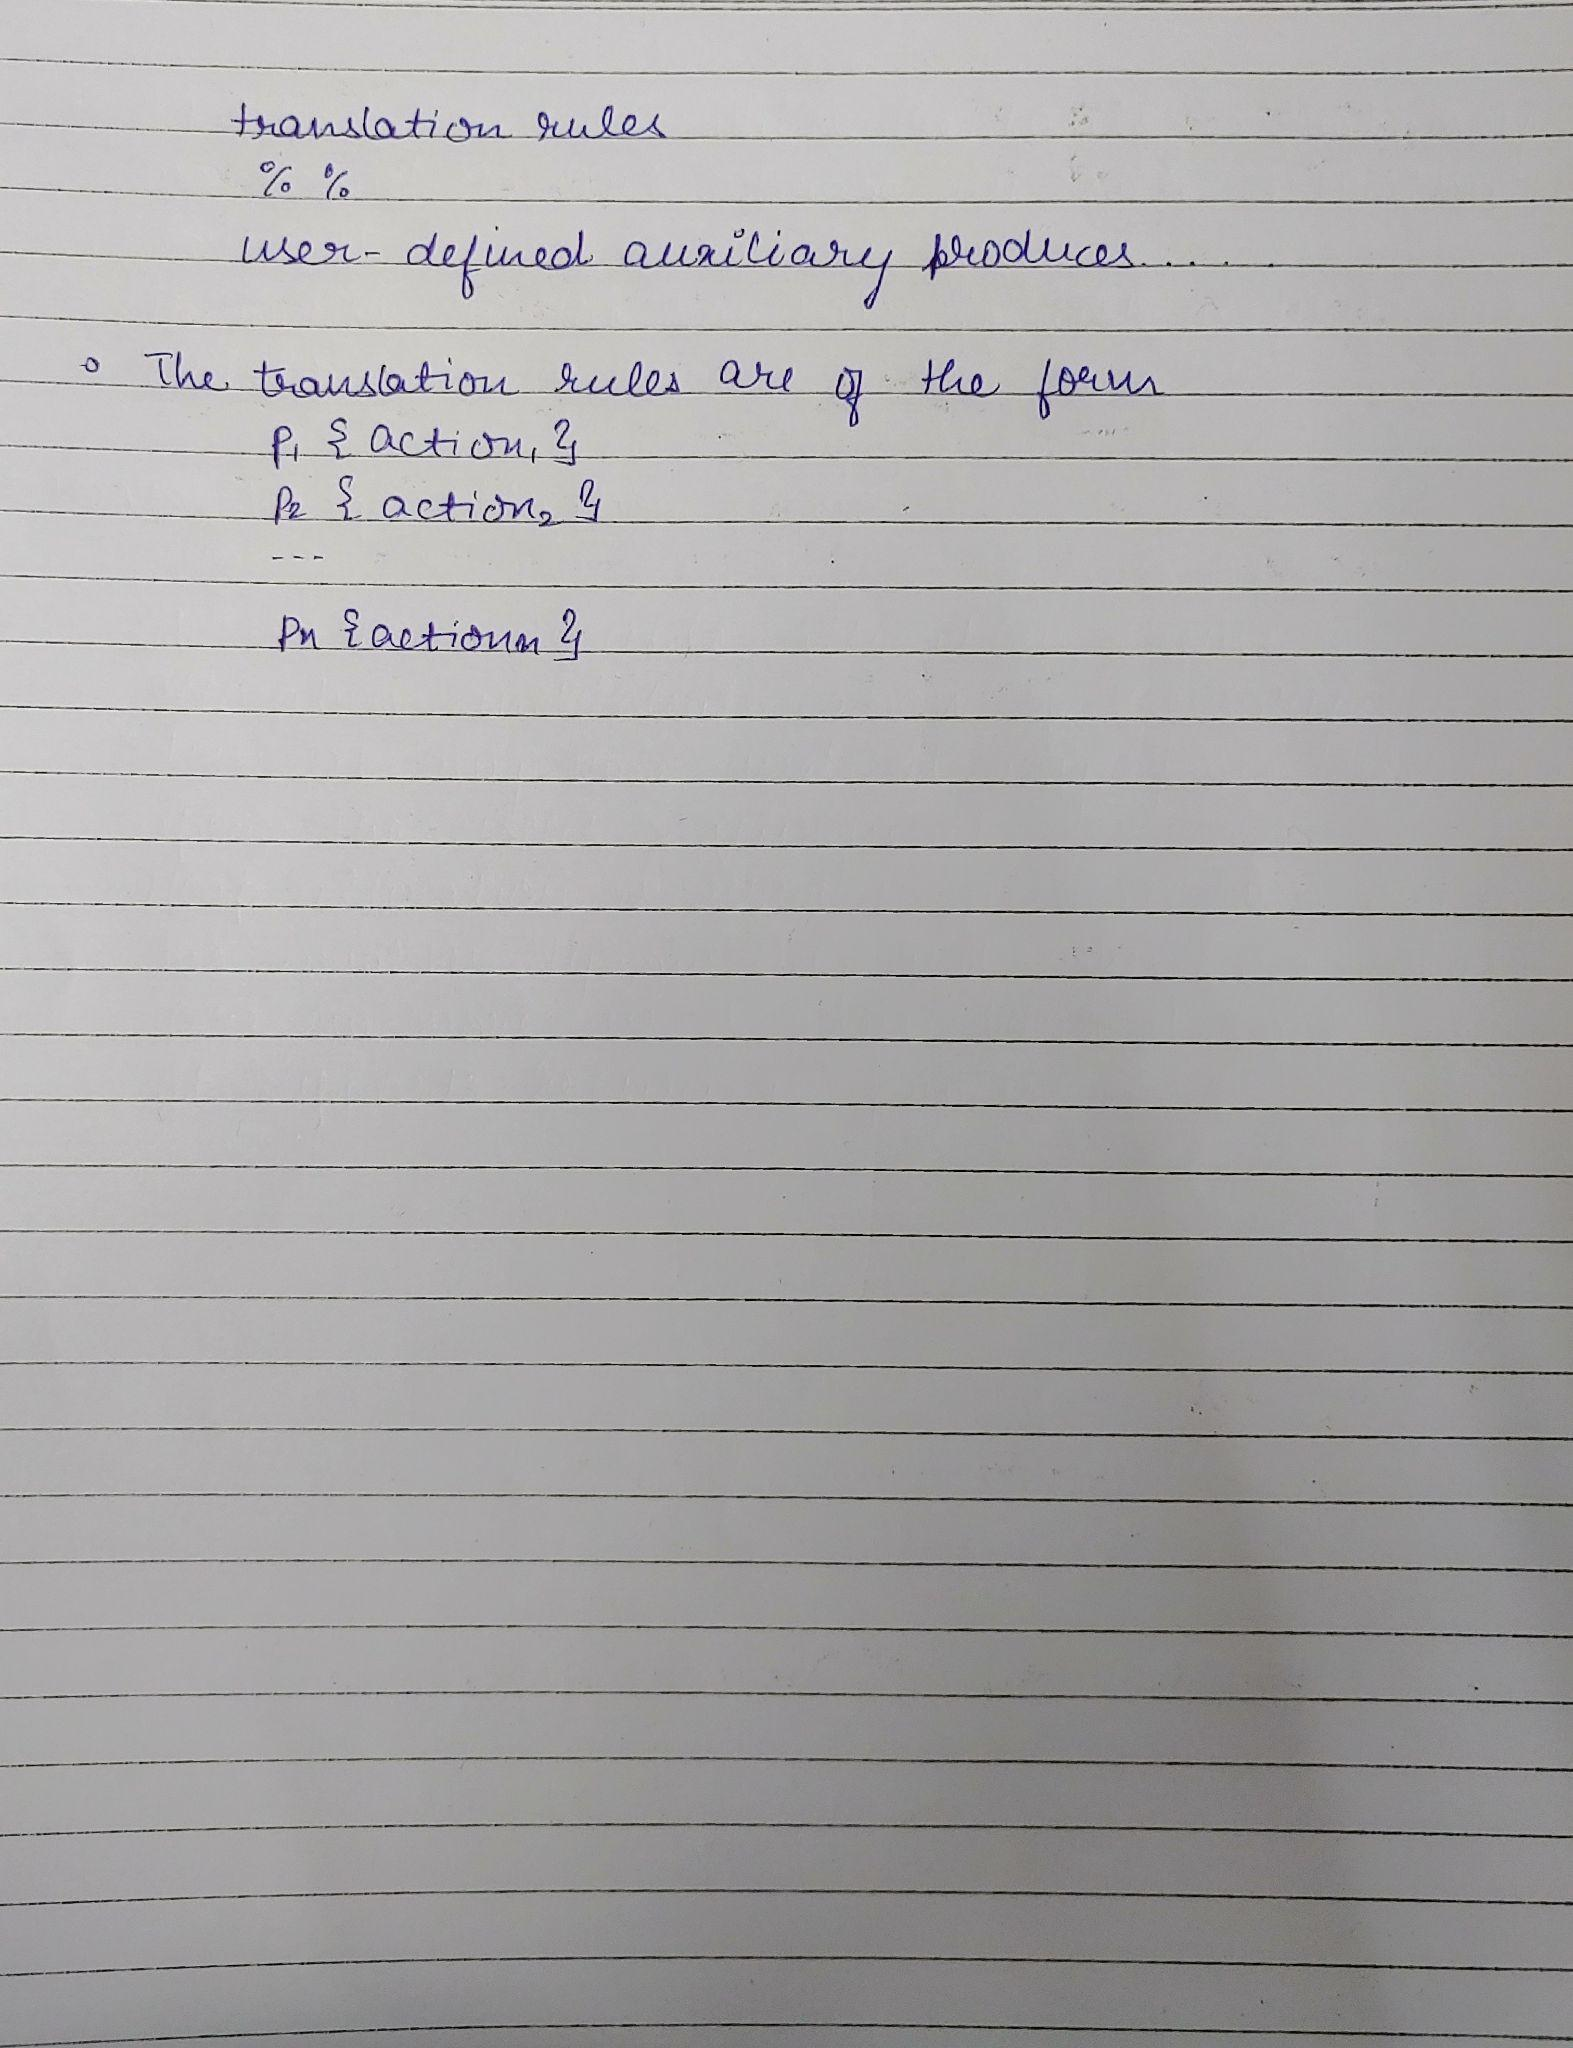 translation rules
% %
user-defined auxiliary produces....
o The translation rules are of the form
P1 { action1 }
P2 { action2 }
---
Pn { actionn }